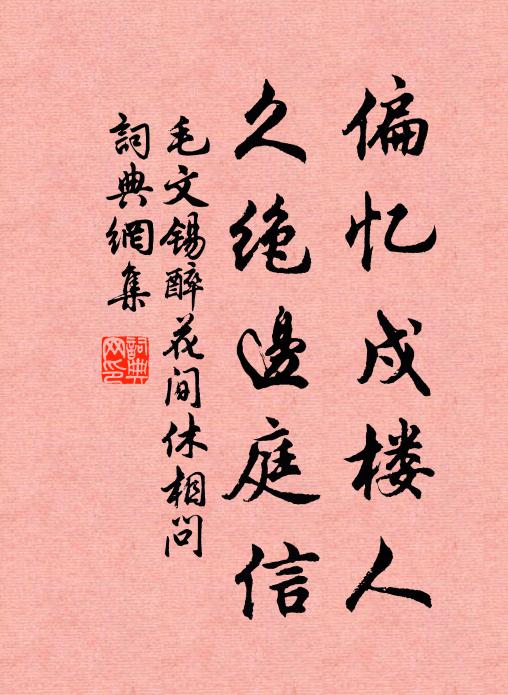 偏忆戍楼人
久绝邊庭信
毛文锡醉花间休相問
詞典網集
詞典網印